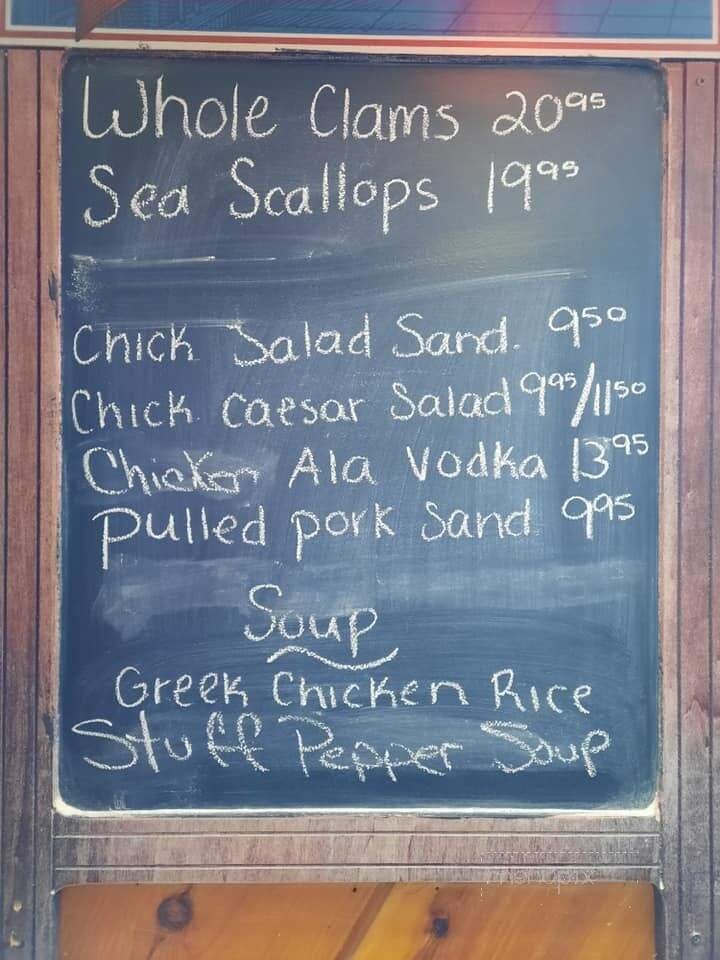 Whole Clams 20 95
Sea Scallops 19 95
Chick Salad Sand. 9 50
Chick Caesar Salad 9 95/11 50
Chicken Ala Vodka 13 95
Pulled pork Sand 9 95
Soup
Greek Chicken Rice
Stuff Pepper Soup